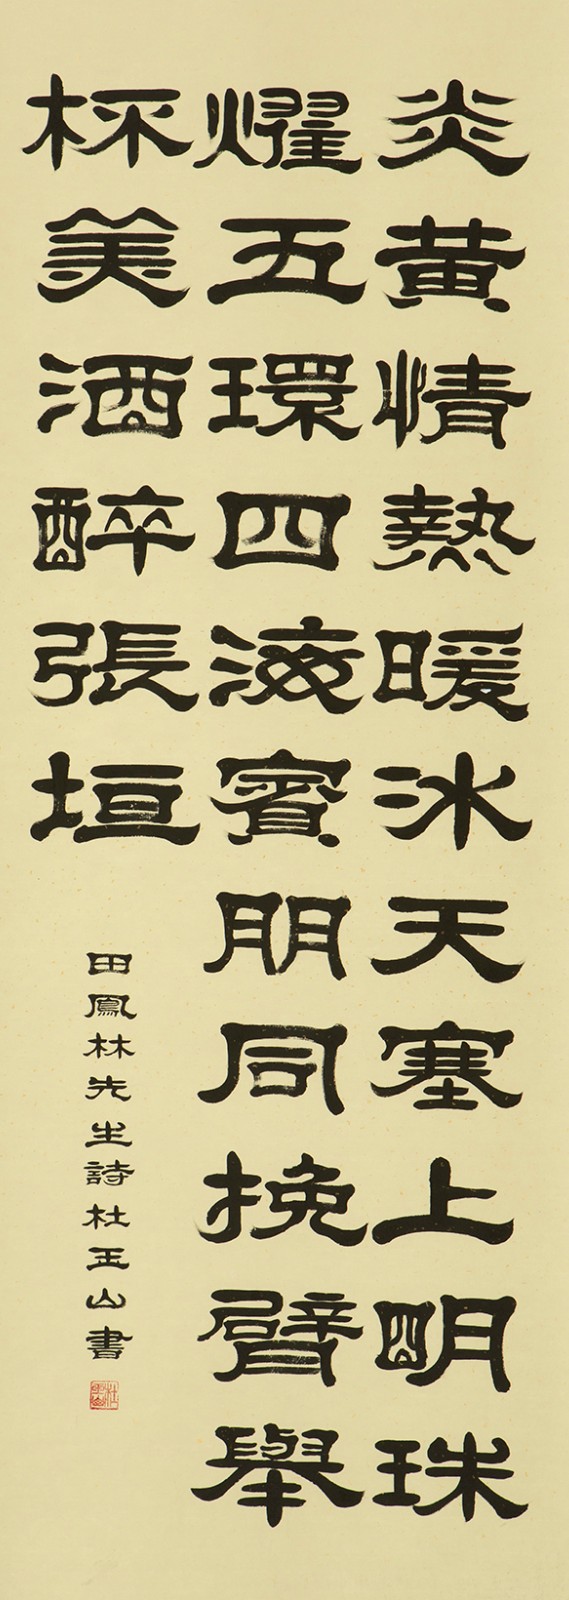 炎黃情熱暖冰天塞上明珠
耀五環四海賓朋同挽臂舉
杯美酒醉張垣
田鳳林先生詩杜玉山書